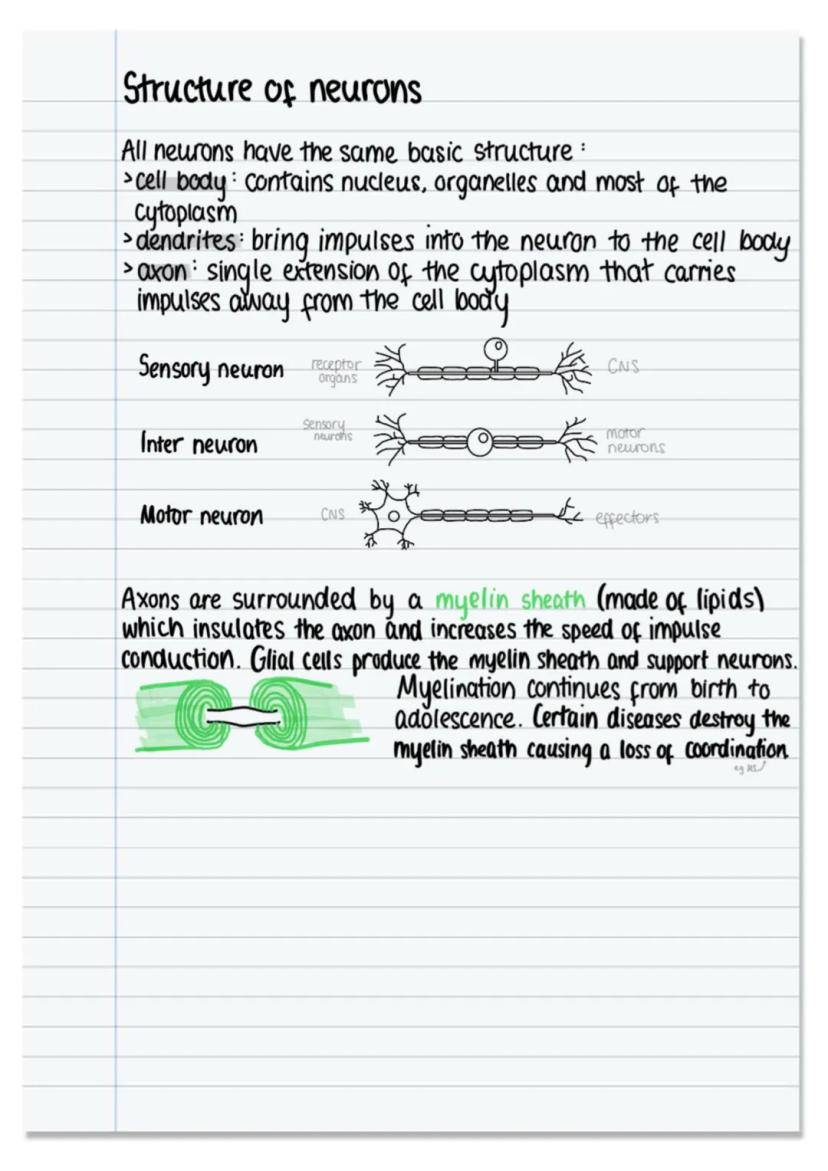 Structure of neurons
All neurons have the same basic structure :
>cell body : contains nucleus, organelles and most of the
cytoplasm
>dendrites: bring impulses into the neuron to the cell body
>axon: single extension of the cytoplasm that carries
impulses away from the cell body
Sensory neuron
receptor
organs
CNS
Inter neuron
sensory
neurons
motor
neurons
Motor neuron
CNS
effectors
Axons are surrounded by a myelin sheath (made of lipids)
which insulates the axon and increases the speed of impulse
conduction. Glial cells produce the myelin sheath and support neurons.
Myelination continues from birth to
adolescence. Certain diseases destroy the
myelin sheath causing a loss of coordination
eg MS